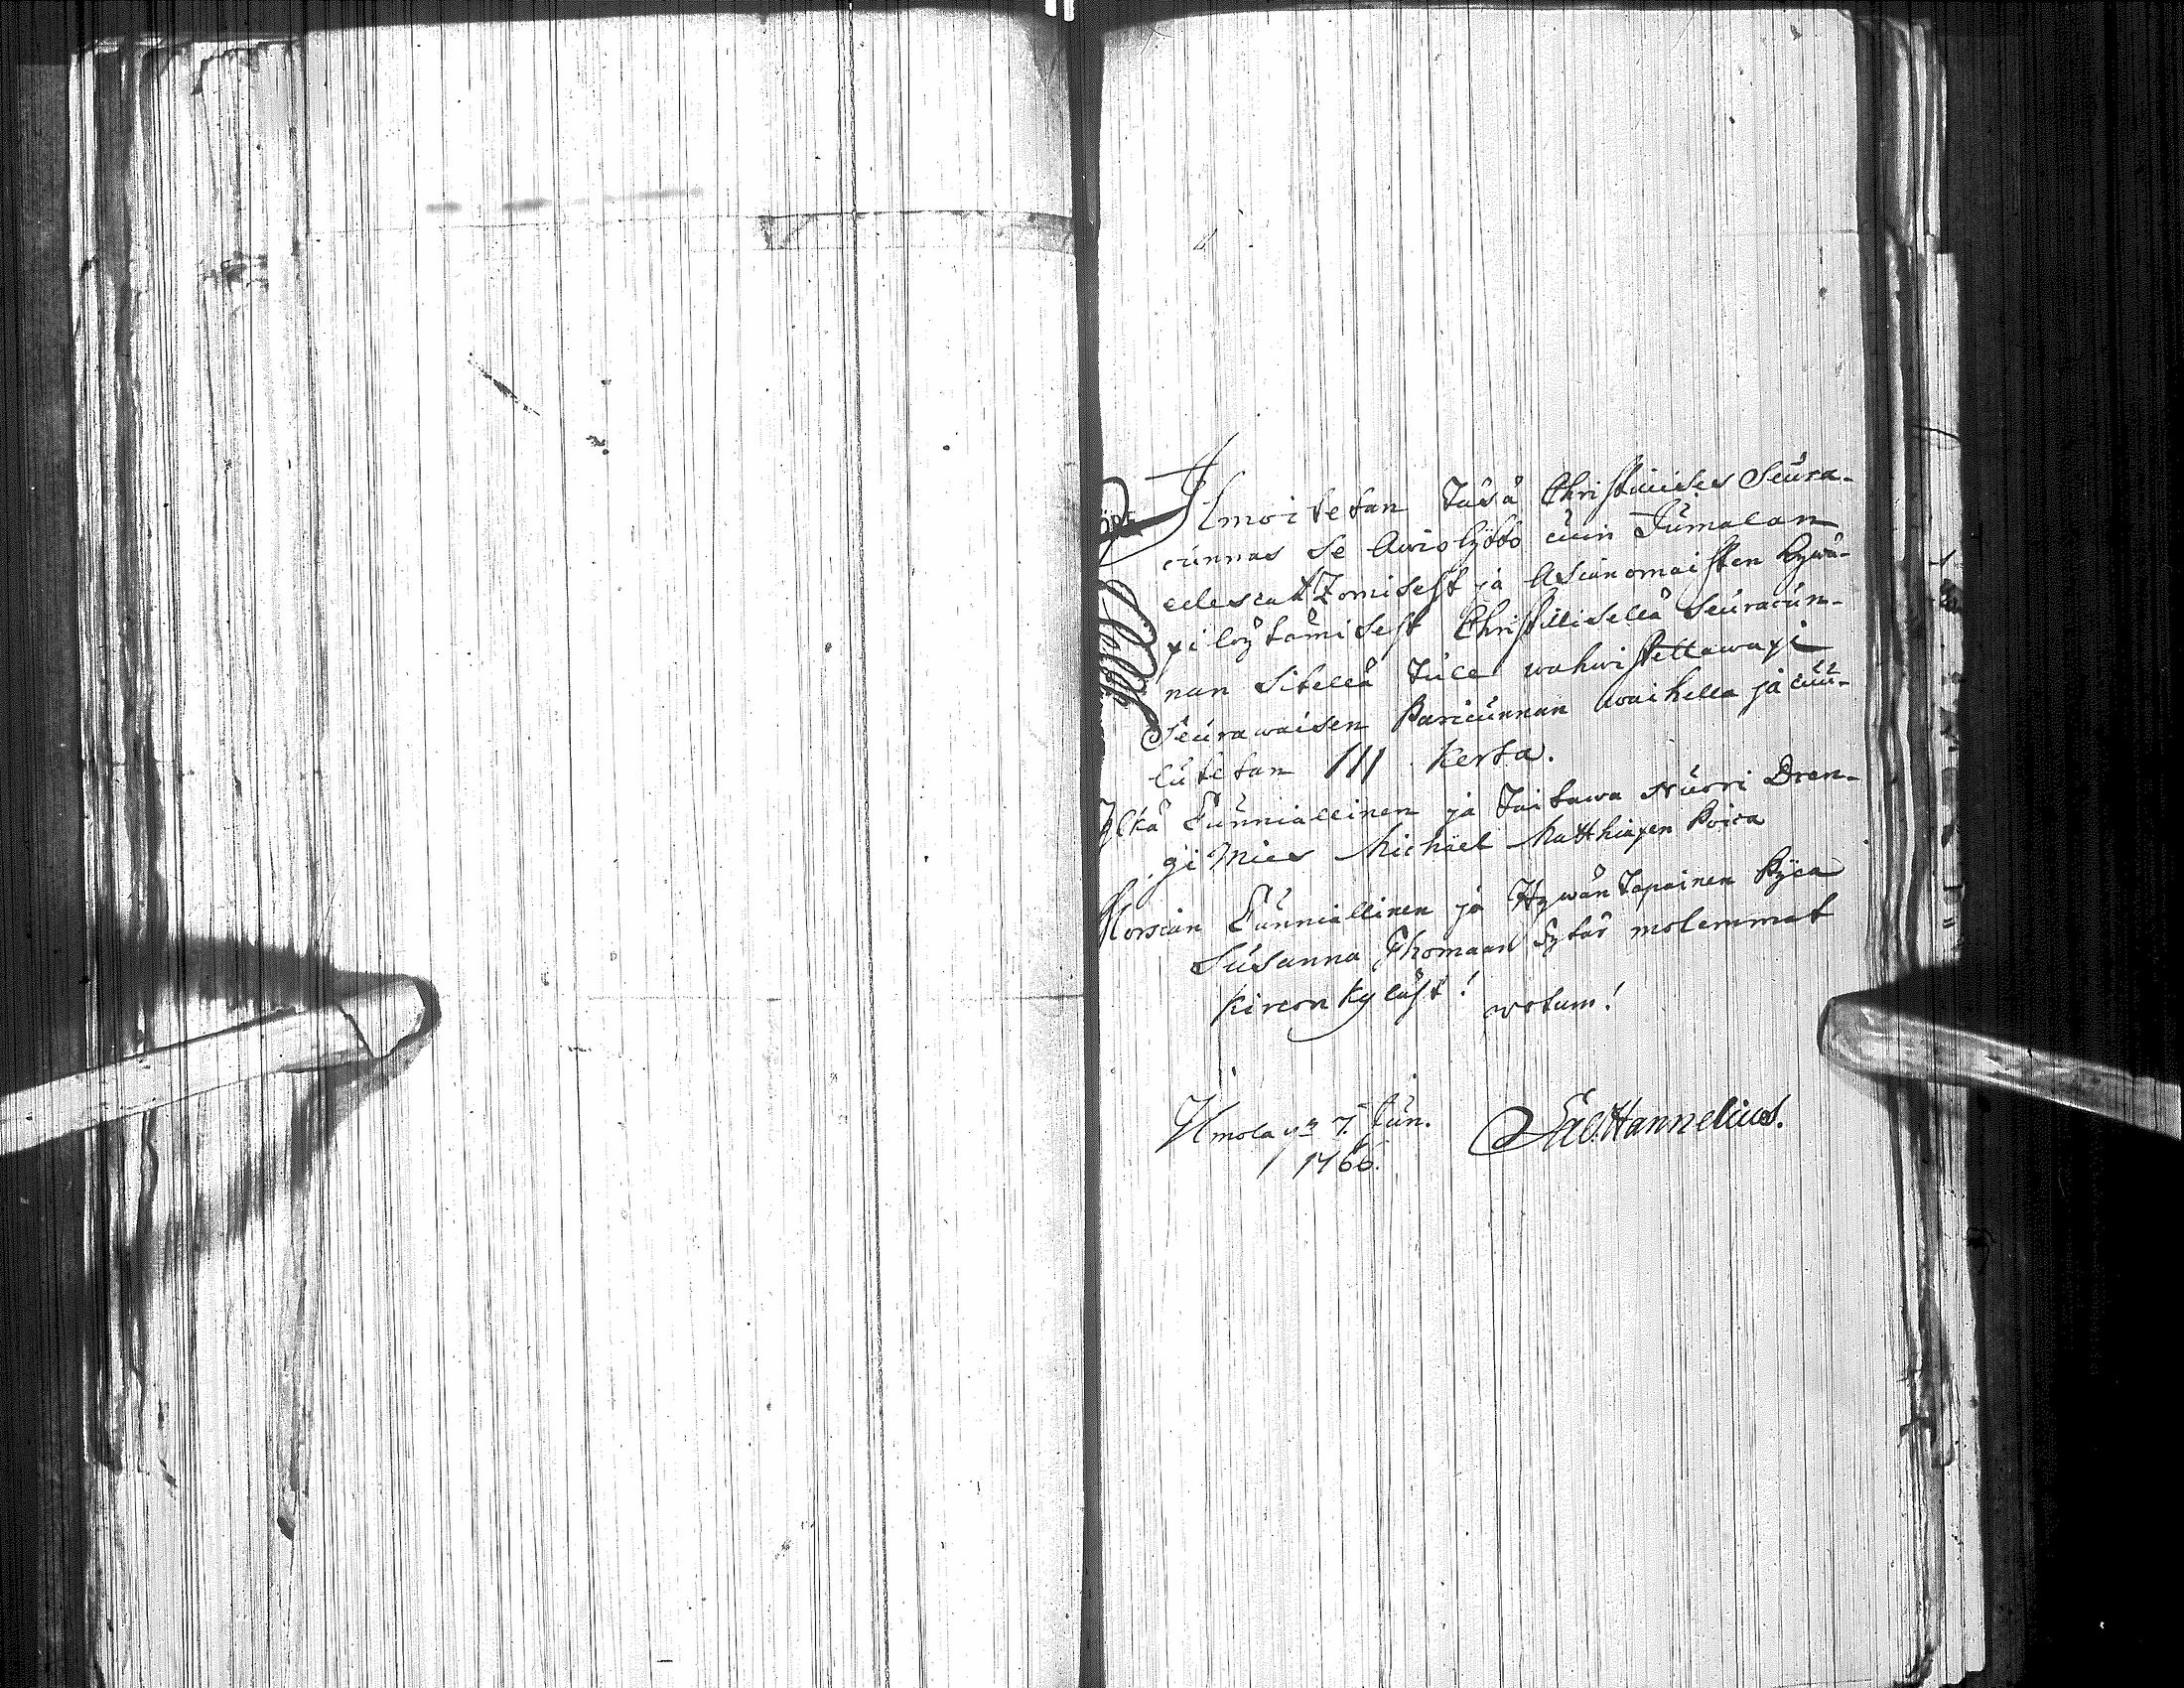 Ilmoitetan Täsä Christilises Seura-
cunnas se Awioskäsky cuin Jumalan
edescatzomisest ja Asianomaisten hywä-
xi löytämisest Christillisellä Seuracun-
nan sitellä tule wahwistettawaxi
Seurawaisen Pariscunnan waihella ja cuu-
lutetan III kerta.
Yljkä Cunniallinen ja Taitawa Nuori Dren-
gi Mies Michäel Matthiaxen Poica
Morsian Cunniallinen ja Hywäntapainen Pijca
Susanna Thomaan Tytär molemmat
Kircon kyläst! votum!
Ilmola 7. Jun.
1766.
Hannelius.